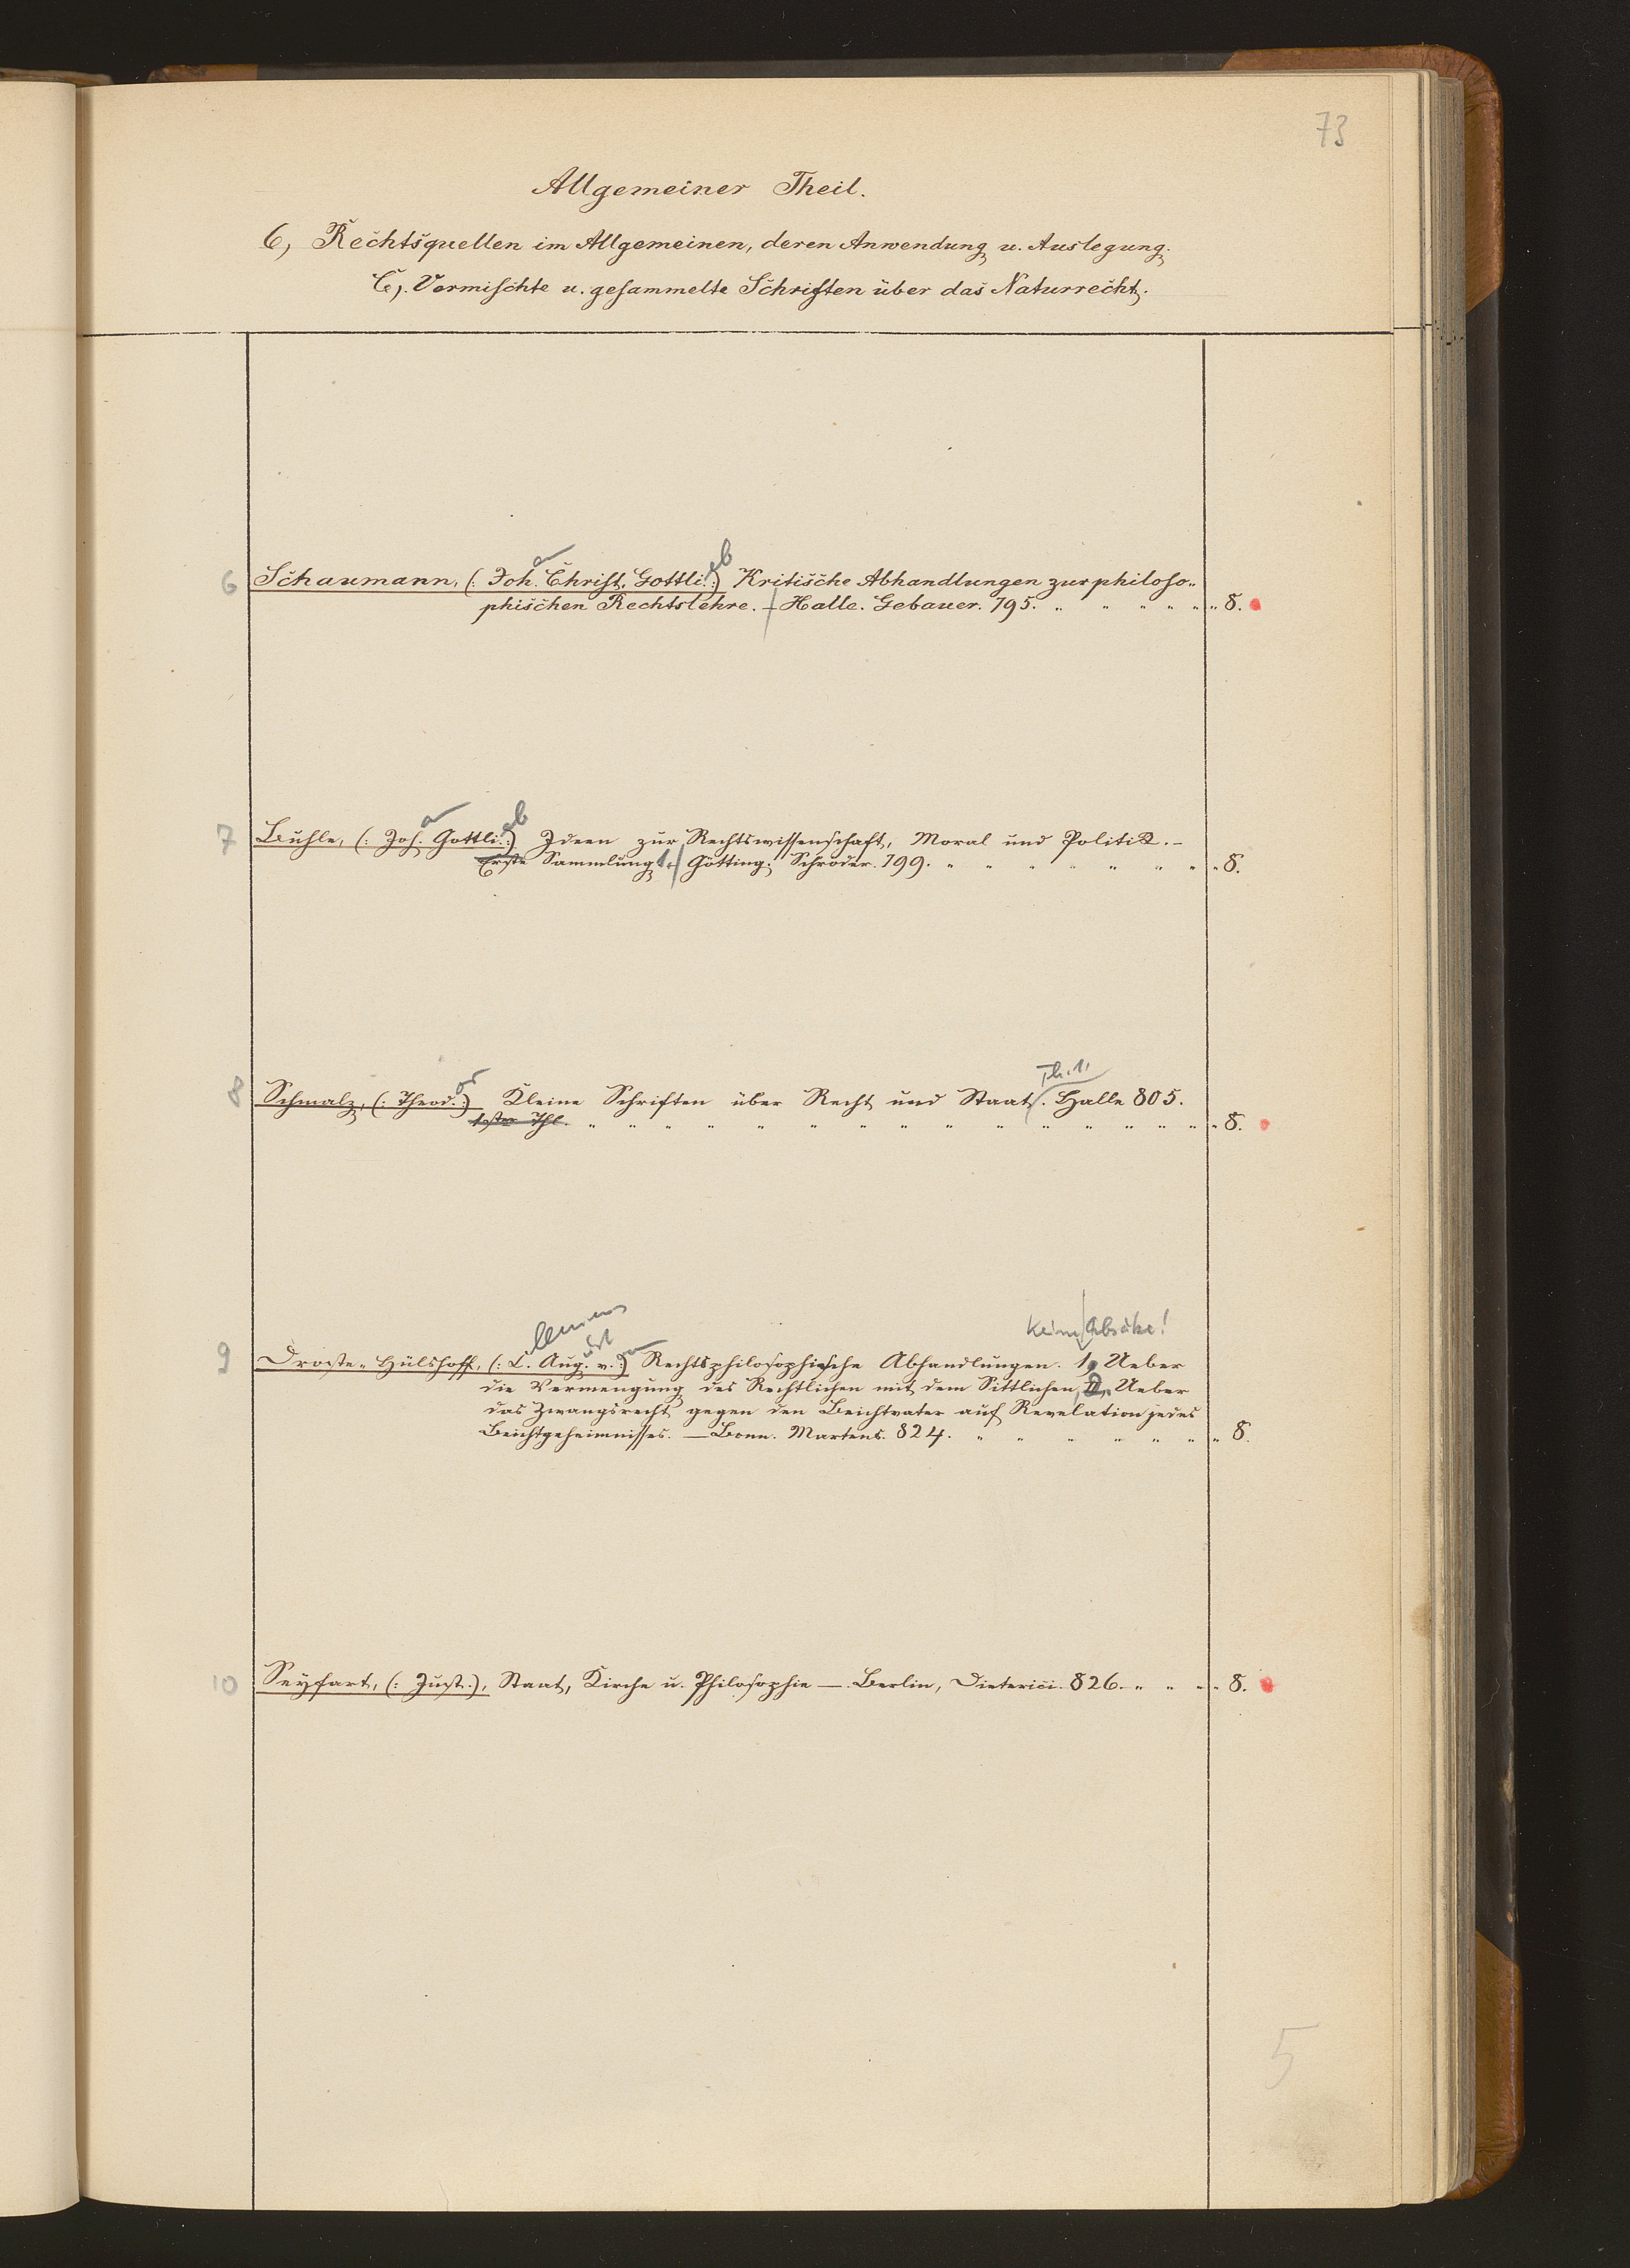 73
Allgemeiner Theil.
6, Rechtsquellen im Allgemeinen, deren Anwendung u. Auslegung.
C, Vermischte u. gesammelte Schriften über das Naturrecht.
6 Schaumann, (: Joh. Christ. Gottli.eb :) Kritische Abhandlungen zur philoso-
phischen Rechtslehre. - Halle. Gebauer. 795. " " " " " " 8.
7 Buhle, (: Joh. Gottli.eb :) Ideen zur Rechtswissenschaft, Moral und Politik. -
Erste Sammlung 1. Götting. Schröder. 799. " " " " " " " " 8.
Th. 1.
8 Schmalz, (: Theod.or :) Kleine Schriften über Recht und Staat. Halle 805.
1ster Thl. " " " " " " " " " " " " " " " " 8.
lemens
ust
on
keine Absätze!
9 Droste-Hülshoff, (: C. Aug. v. :) Rechtsphilosophische Abhandlungen. 1, Ueber
die Vermengung des Rechtlichen mit dem Sittlichen, 2, Ueber
das Zwangsrecht gegen den Beichtvater auf Revelation jedes
Beichtgeheimnisses. — Bonn. Martens. 824. " " " " " " " 8.
10 Seyfart, (: Just.), Staat, Kirche u. Philosophie — Berlin, Dieterici. 826. " " " " 8.
5